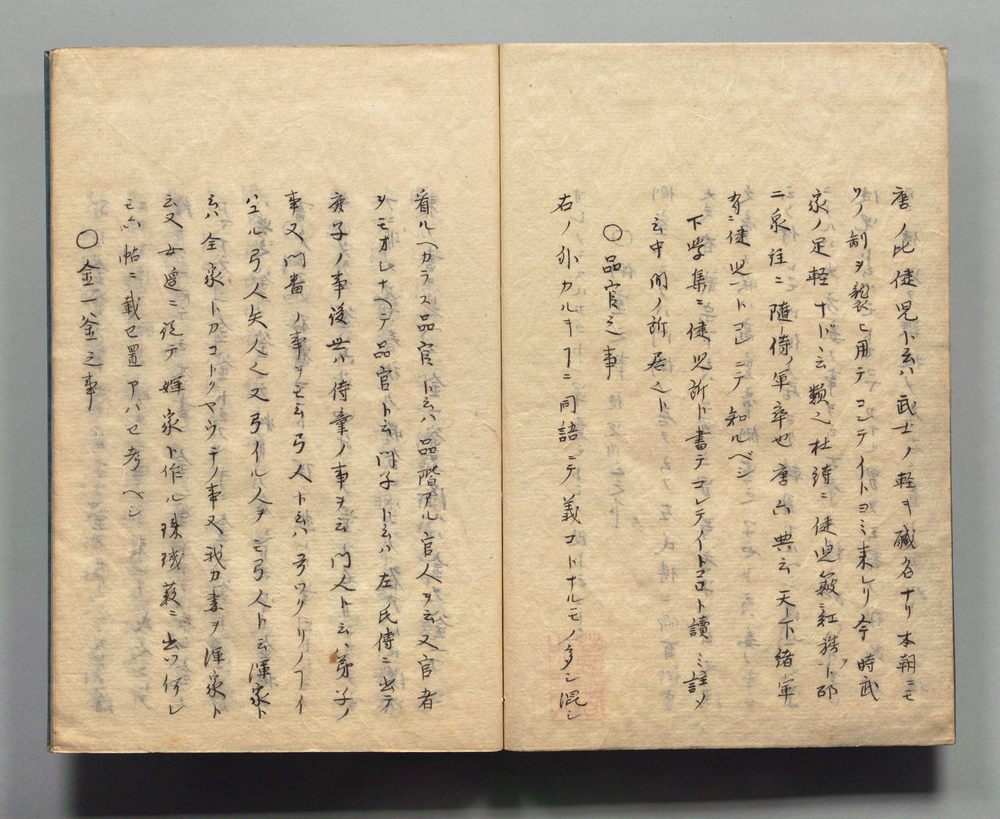 唐ノ比健児ト云ハ武士ノ軽キ職名ナリ本朝ニモ
ソノ制ヲ襲ヒ用テコンテイトヨミ来レリ今時武
家ノ足軽ナドヽ云類也杜詩ニ健児
二泉註ニ随侍ノ軍卒也唐六典云天下諸軍
有健児トコレニテ知ルベシ
下学集ニ健児所ト書テコンテイトコロト讀ミ註ノ
云中間ノ所居也ト
○品官之事
右ノ外カルキヿニ同語ニテ義コトナルモノ多シ混シ
看ルヘカラス品官ト云ハ品階アル官人ヲ云又官者
ヲモオシナヘテ品官ト云門子ト云ハ左氏傳ニ出テ
庶子ノ事後世ハ侍童ノ事ヲ云門人ト云ハ弟子ノ
事又門番ノ事ヲモ云弓人ト云ハ弓ツクリノヿイ
ハユル弓人矢人也又弓イル人ヲモ弓人ト云渾家ト
云ハ全家ト云コトクマウテノ事又我カ妻ヲ渾家ト
云又女邊ニ従テ媈家ト作ル珠璣薮ニ出ツ何レ
モ六帖ニ載セ置アハセ考ベシ
○金一釜之事